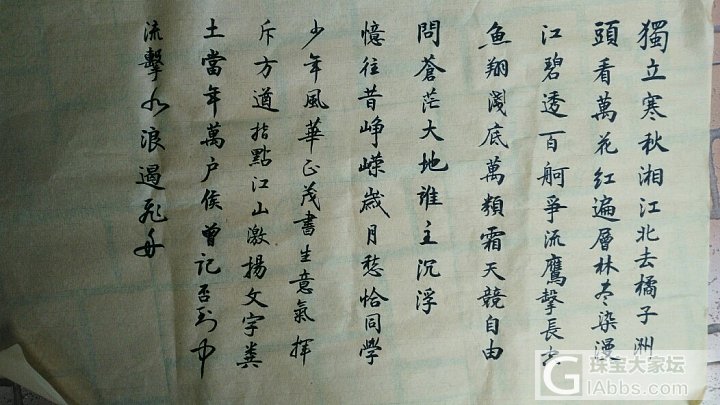 獨立寒秋湘江北去橘子洲
頭看萬花红遍層林尽染漫
江碧透百舸爭流鷹擊長
魚翔淺底萬類霜天競自由
問蒼茫大地谁主沉浮
憶往昔崢嶸歲月愁恰同學
少年風華正茂書生意氣揮
斥方遒指點江山激揚文字粪
土當年萬户侯曾记否到中
流擊水浪遏飛舟
珠宝大家坛
GIAbbs.com